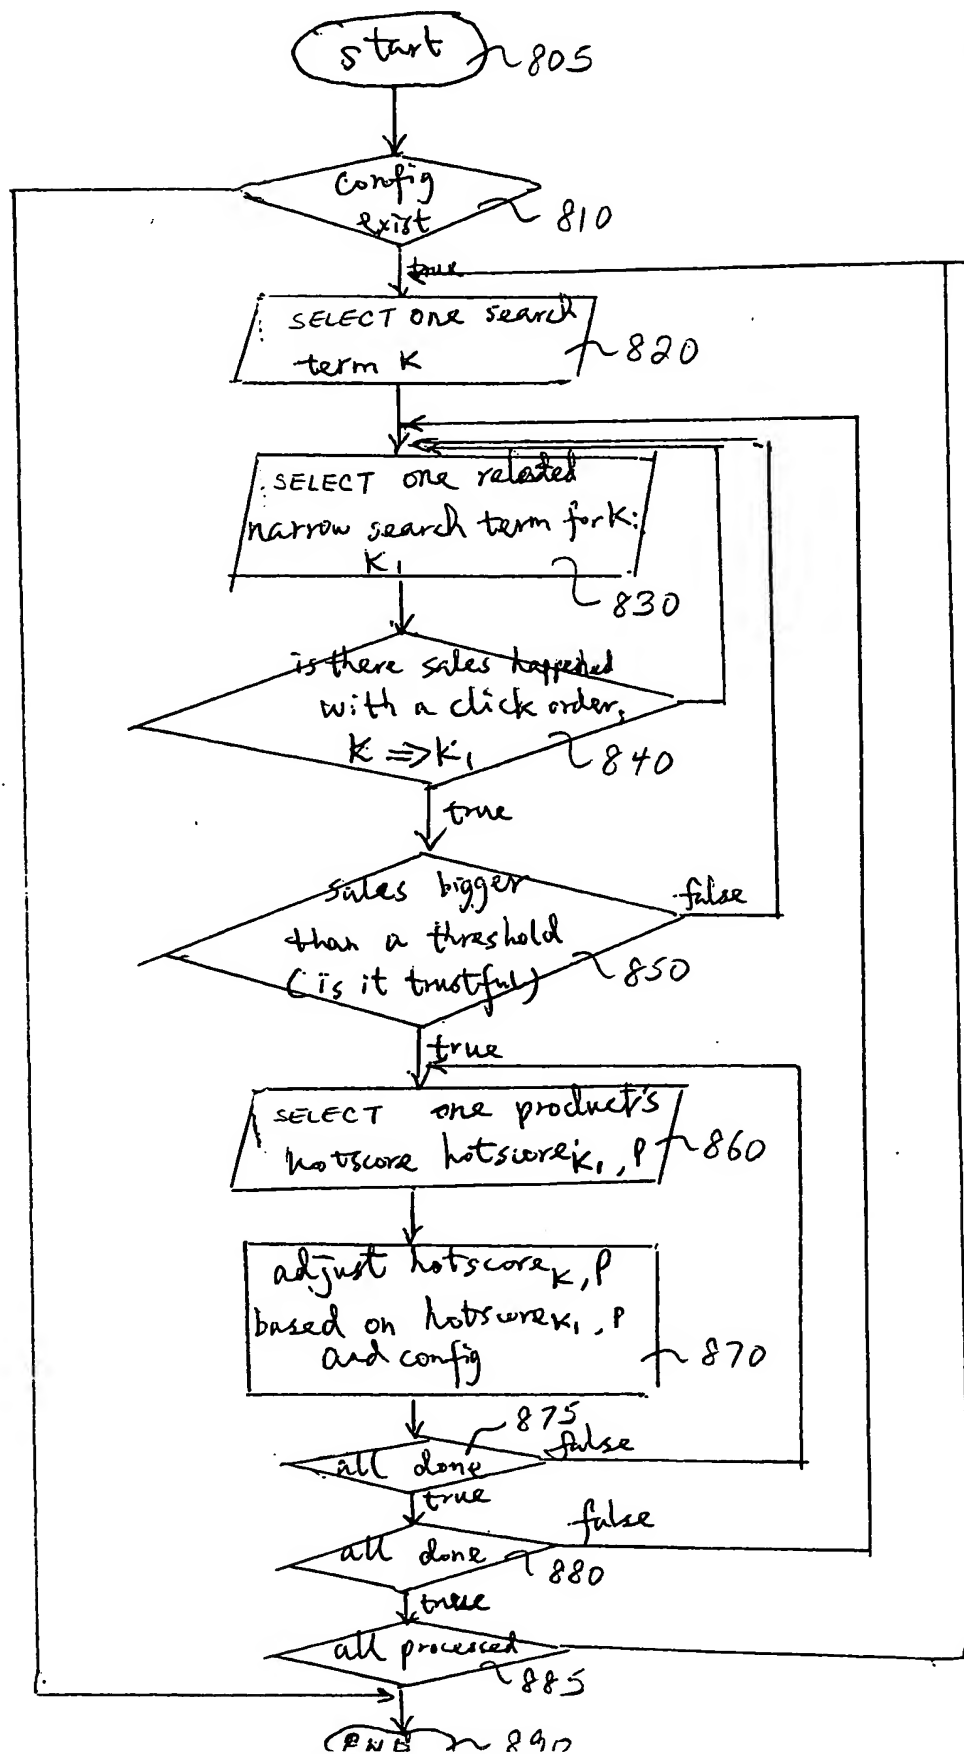 start 805
config
exist 810
true
SELECT one search
term K 820
SELECT one related
narrow search term for K:
K1 830
is there sales happened
with a click order,
K ⇒ K1 840
true
sales bigger
than a threshold
(is it trustful) 850
false
true
SELECT one product's
hotscore hotscoreK1, P 860
adjust hotscoreK, P
based on hotscoreK1, P
and config 870
875
all done false
true
all done false
880
true
all processed
885
END 890